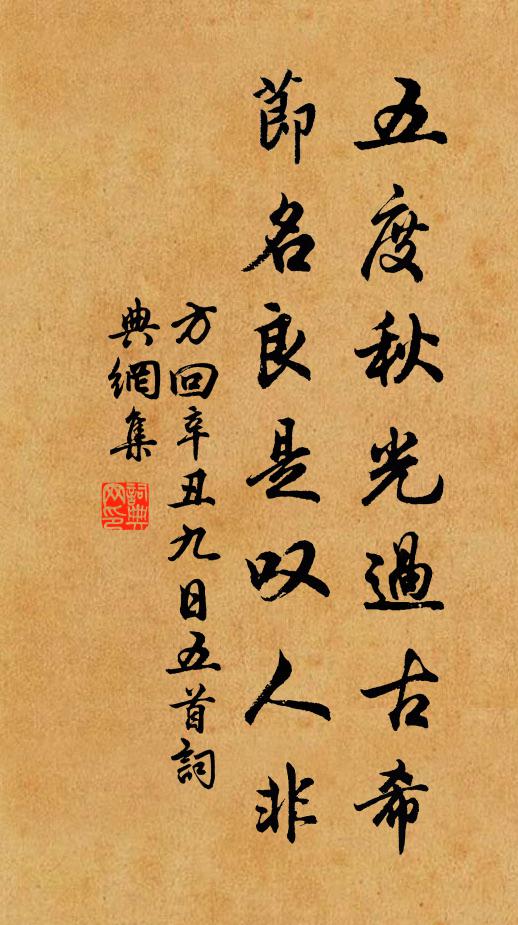 五度秋光過古希
節名良是叹人非
方回辛丑九日五首詞
典網集
詞典网印